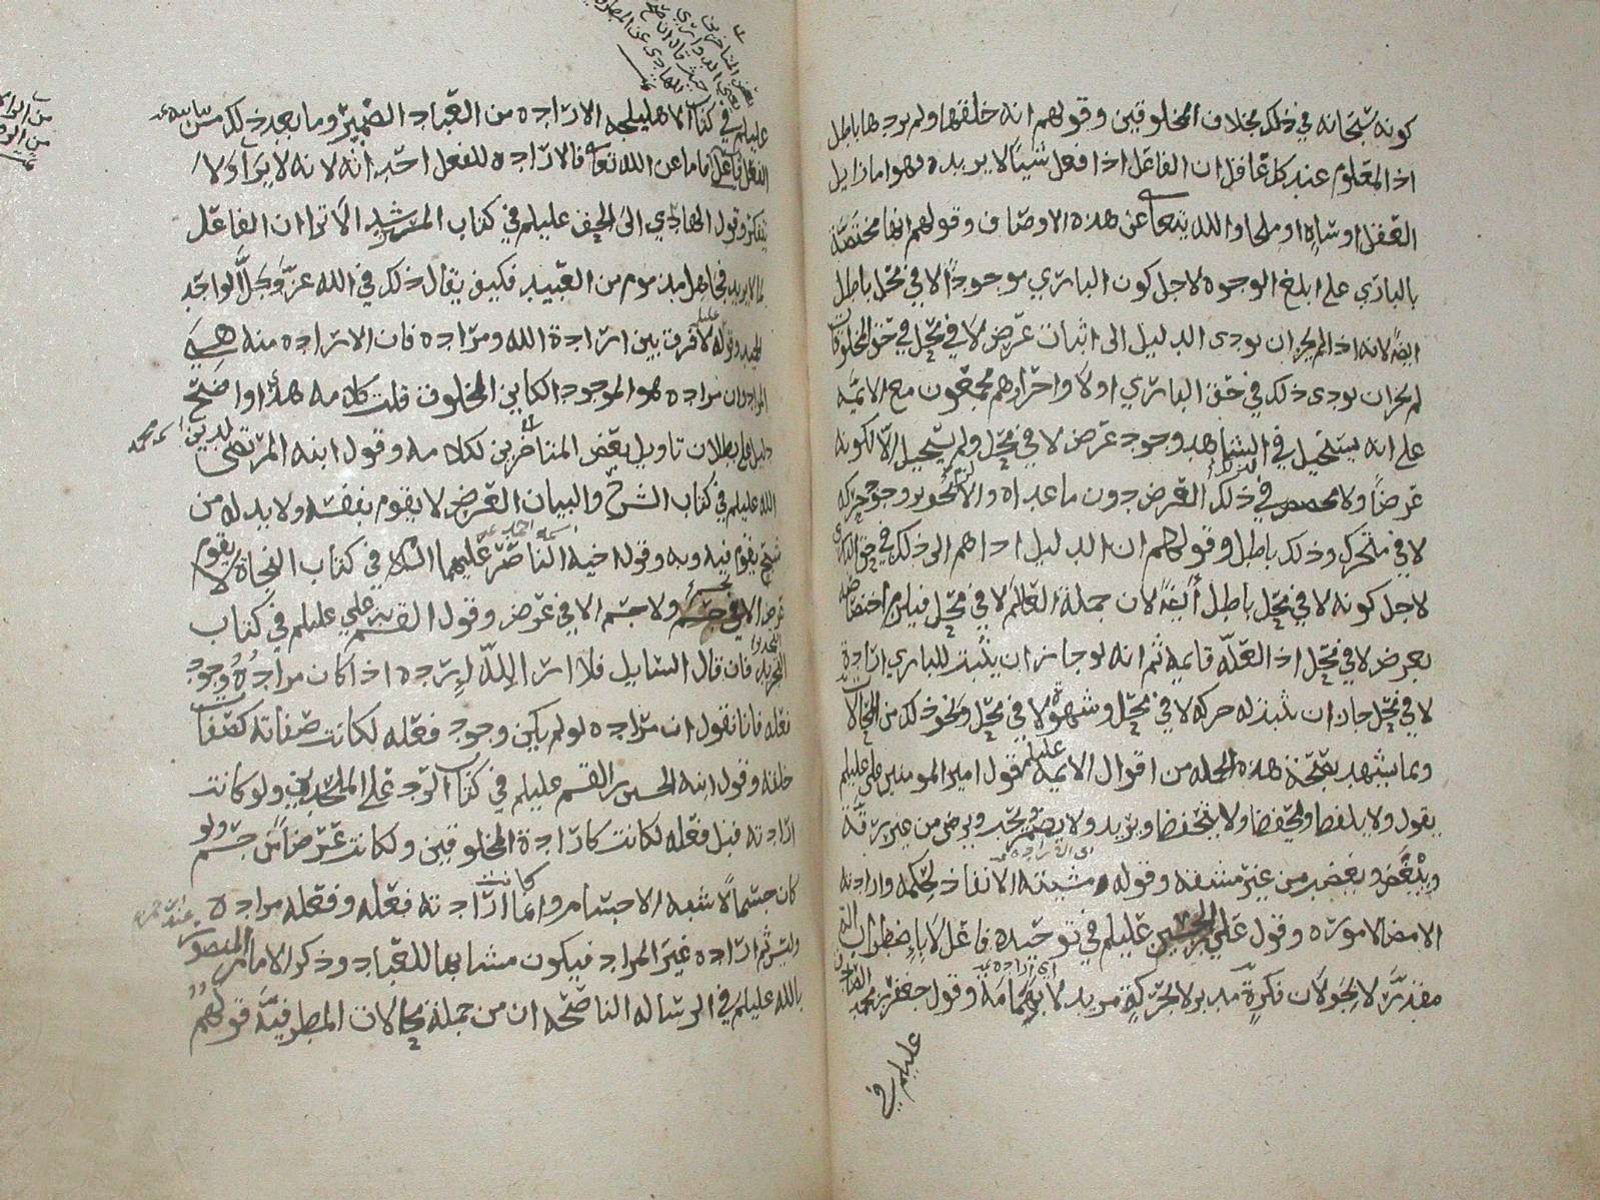 كونه سبحانه في ذلك بخلاف المخلوقين وقولهم انه خلقها ولم يردها باطل
اذ المعلوم عند كل عاقل ان الفاعل اذا فعل شيئا لا يريده فهو اما زايل
العقل او ساه او ملجا والله يتعالى عن هذه الاوصاف وقولهم انها مختصة
بالباري على ابلغ الوجوه لاجل كون الباري موجودا لا في محل باطل
ايضا لانه اذا لم يجز ان يودى الدليل الى اثبات عرض لا في محل في حق المخلوقات
لم يجز ان يودى ذلك في حق الباري اولا واحرا وهم مجمعون مع الايمه
على انه يستحيل في الشاهد وجود عرض لا في محل ولم يستحيل الا لكونه
عرضا ولا مخصص في ذلك لعرض دون ما عداه والا لجوز وجود حركه
لا في متحرك وذلك باطل وقولهم ان الدليل اداهم الى ذلك في حق الباري
لاجل كونه لا في محل باطل ايضا لان جملة العالم لا في محل فيلزم اختصاصه
بعرض لا في محل اذ العله قايمه ثم انه لو جاز ان يثبت للباري ارادة
لا في محل جاز ان يثبت له حركه لا في محل وشهوة لا في محل ونحو ذلك من المحالات
ومما يشهد بصحة هذه الجمله من اقوال الايمه عليلم قول امير المومنين علي عليلم
يقول ولا يلفظ ويحفظ ولا يتحفظ ويريد ولا يضمر ويحب ويرضى من غير رقة
ويبغض ويغضب من غير مشقه وقوله مشيته الانفاذ لحكمه وارادته
الامضا لاموره وقول علي بن الحسين عليلم في توحيده فاعل لا باضطراب
مقدر لا بجولان فكرة مدبر لا بحركة مريد لا بهمامة وقول جعفر بن محمد الصادق
عليلم في
عليلم في كتاب الاهليلجه الارادة من العباد الضمير وما يبعد ذلك من
الفعل فاما من الله تعالى فالارادة للفعل احداثه لانه لا يروي ولا
يتفكر وقول الهادي الى الحق عليلم في كتاب المسترشد الا ترا ان الفاعل
لما لا يريد فجاهل مذموم من العبيد فكيف يقال ذلك في الله عز وجل الواحد
المجيد وقوله لا فرق بين ارادة الله ومراده فان الارادة منه هي
المراد وان مراده هو الموجود الكاين المخلوق قلت كلامه هذا واضح
دليل على بطلان تاويل بعض المتاخرين لكلامه وقول ابنه المرتضى لدين
الله عليلم في كتاب الشرح والبيان العرض لا يقوم بنفسه ولا بد له من
شبح يقوم فيه وبه وقوله اخيه الناصر عليهما السلام في كتاب النجاة لا يقوم
عرض الا في جسم ولا جسم الا في عرض وقول القسم بن علي عليلم في كتاب
التجريد فان قال السايل فلا ارا لله ارادة اذا كان مراده وجود
فعله فانا نقول ان مراده لو لم يكن وجود فعله لكانت صفاته كصفات
خلقه وقول ابنه الحسين بن القسم عليلم في كتاب الرد على الملحدين ولو كانت
ارادته قبل فعله لكانت كارادة المخلوقين ولكانت عرضا من جسم ولو
كان جسما لاشبه الاجسام وانما كانت ارادته فعله وفعله مراده
وليس ثم ارادة غير المراد فيكون مشابها للعباد وذكر الامام المنصور
بالله عليلم في الرساله الناصحه ان من جملة محالات المطرفية قولهم